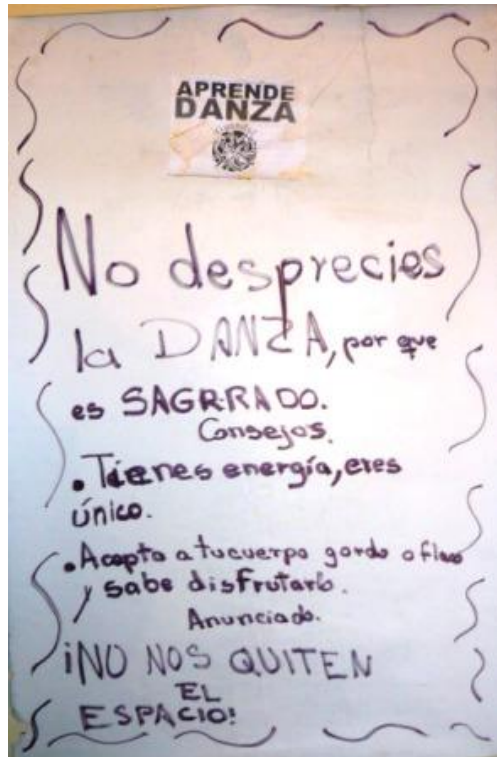 APRENDE
DANZA
No desprecies
la DANZA, por que
es SAGRRADO.
Consejos.
• Tienes energía, eres
único.
• Acepta a tu cuerpo gordo o flaco
y sabe disfrutarlo.
Anunciado.
¡NO NOS QUITEN
EL
ESPACIO!